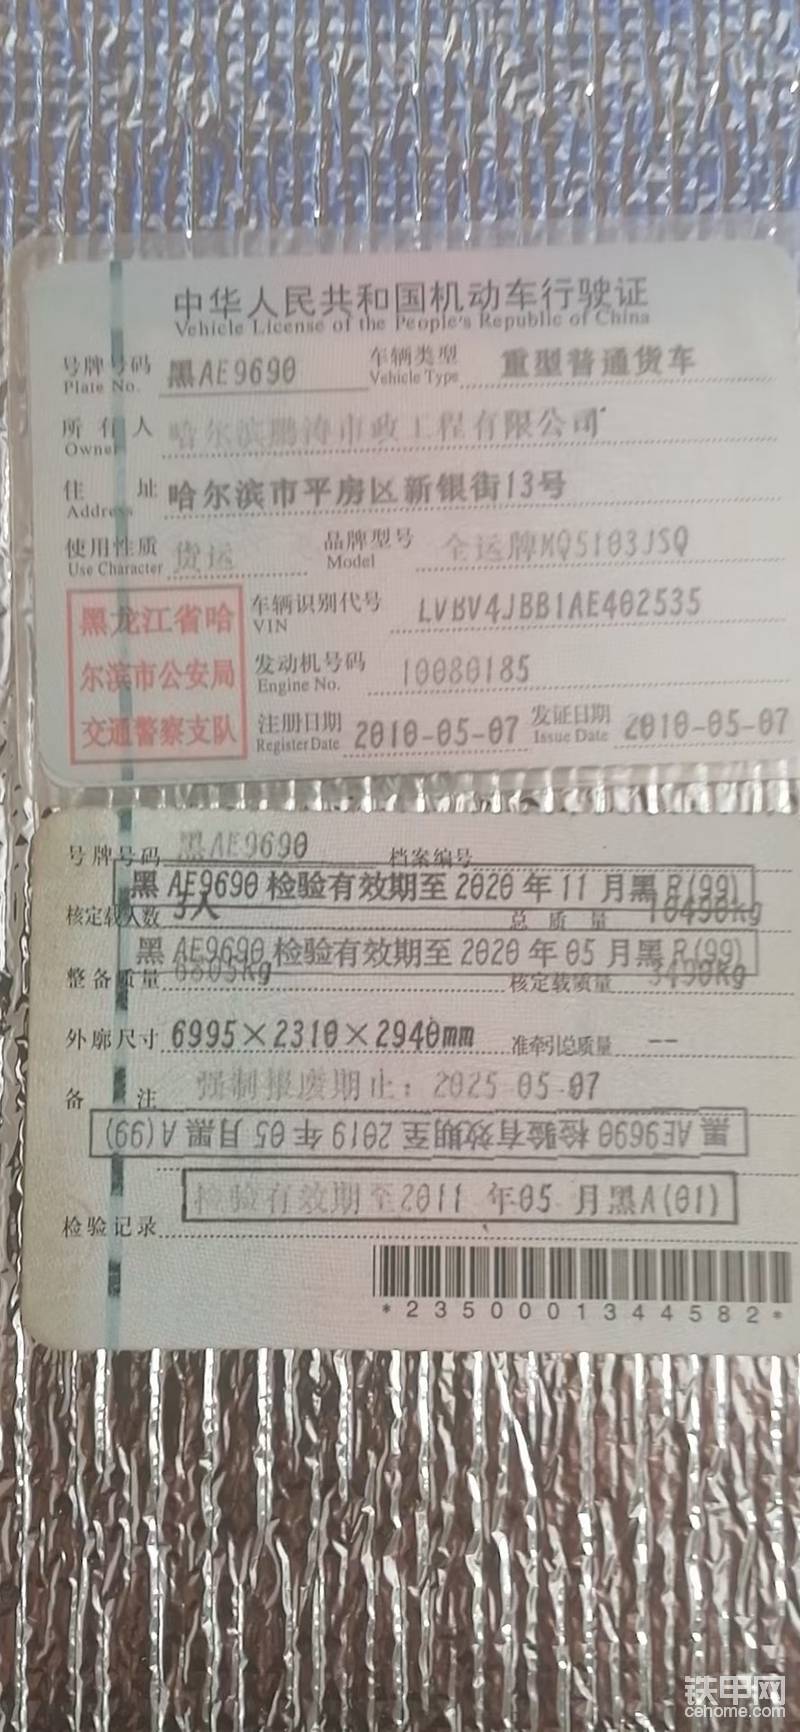 中华人民共和国机动车行驶证
Vehicle License of the People's Republic of China
号牌号码 黑AE9690 车辆类型 重型普通货车
Plate No. Vehicle Type
所有人 哈尔滨鹏涛市政工程有限公司
Owner
住址 哈尔滨市平房区新银街13号
Address
使用性质 货运 品牌型号 全运牌MQ5103JSQ
Use Character Model
黑龙江省哈
尔滨市公安局
交通警察支队
车辆识别代号 LVBV4JBB1AE402535
VIN
发动机号码 10080185
Engine No.
注册日期 2010-05-07 发证日期 2010-05-07
Register Date Issue Date
号牌号码 黑AE9690 档案编号
黑AE9690检验有效期至2020年11月黑R(99)
核定载人数 3人 总质量 10490kg
黑AE9690检验有效期至2020年05月黑R(99)
整备质量 6805kg 核定载质量 3490kg
外廓尺寸 6995×2310×2940mm 准牵引总质量 --
备注 强制报废期止：2025-05-07
黑AE9690检验有效期至2019年05月黑A(99)
检验有效期至2011年05月黑A(01)
检验记录
*2350001344582*
铁甲网
cehome.com